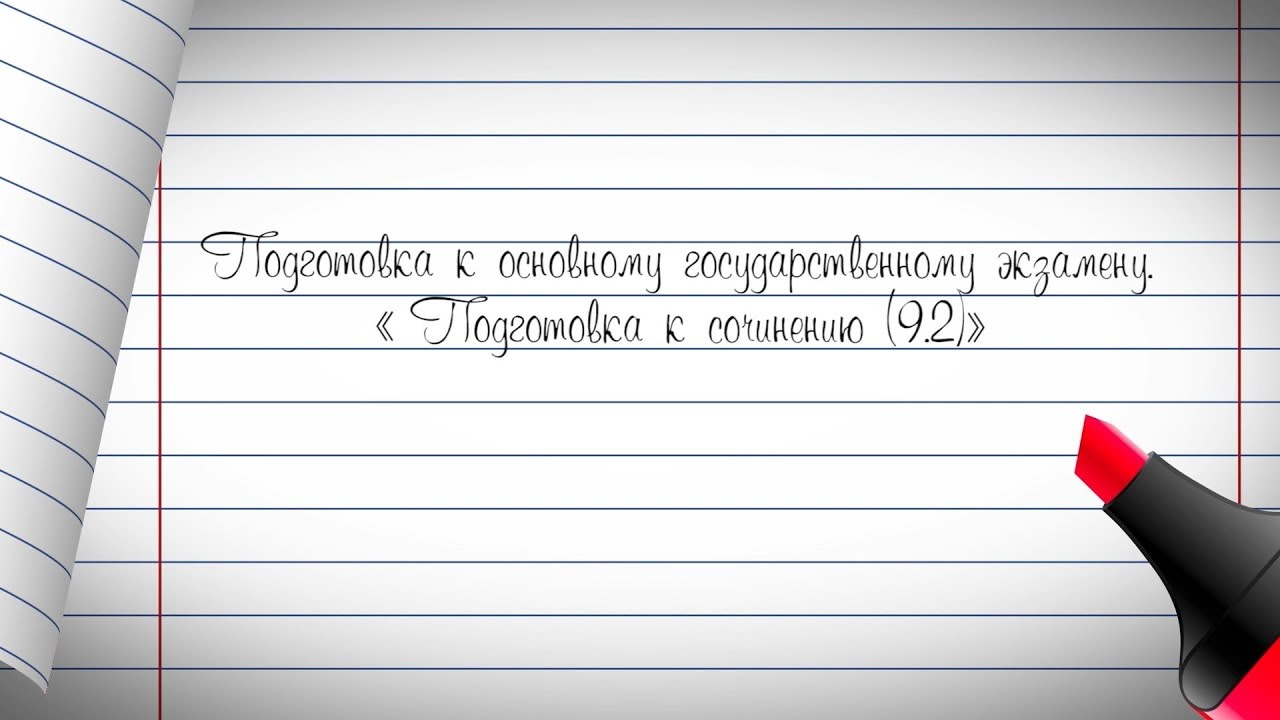 Подготовка к основному государственному экзамену.
« Подготовка к сочинению (9.2)»